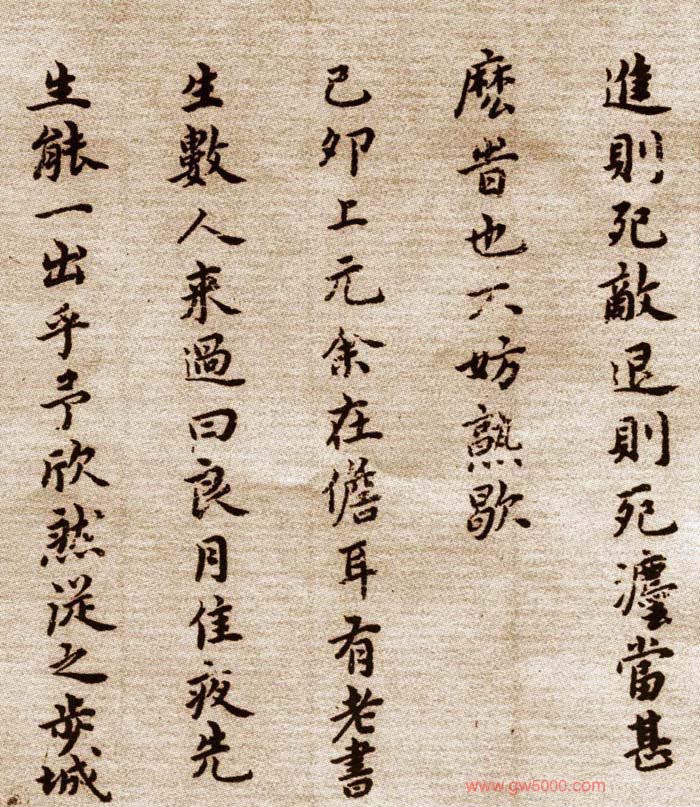 進則死敵退則死灋當甚
麽旹也不妨熟歇
己卯上元余在儋耳有老書
生數人來過曰良月佳夜先
生能一出乎予欣然從之步城
www.gw5000.com